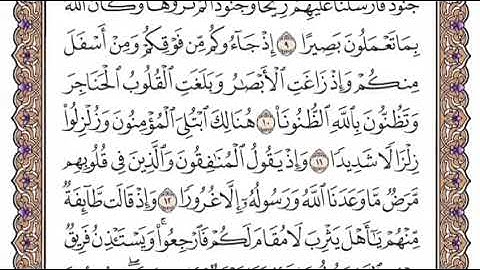 جُنُودٌ فَأَرْسَلْنَا عَلَيْهِمْ رِيحًا وَجُنُودًا لَّمْ تَرَوْهَا وَكَانَ ٱللَّهُ
بِمَا تَعْمَلُونَ بَصِيرًا ٩ إِذْ جَآءُوكُم مِّن فَوْقِكُمْ وَمِنْ أَسْفَلَ
مِنكُمْ وَإِذْ زَاغَتِ ٱلْأَبْصَٰرُ وَبَلَغَتِ ٱلْقُلُوبُ ٱلْحَنَاجِرَ
وَتَظُنُّونَ بِٱللَّهِ ٱلظُّنُونَا۠ ١٠ هُنَالِكَ ٱبْتُلِيَ ٱلْمُؤْمِنُونَ وَزُلْزِلُوا۟
زِلْزَالًا شَدِيدًا ١١ وَإِذْ يَقُولُ ٱلْمُنَٰفِقُونَ وَٱلَّذِينَ فِى قُلُوبِهِم
مَّرَضٌ مَّا وَعَدَنَا ٱللَّهُ وَرَسُولُهُۥٓ إِلَّا غُرُورًا ١٢ وَإِذْ قَالَت طَّآئِفَةٌ
مِّنْهُمْ يَٰٓأَهْلَ يَثْرِبَ لَا مُقَامَ لَكُمْ فَٱرْجِعُوا۟ۚ وَيَسْتَـْٔذِنُ فَرِيقٌ